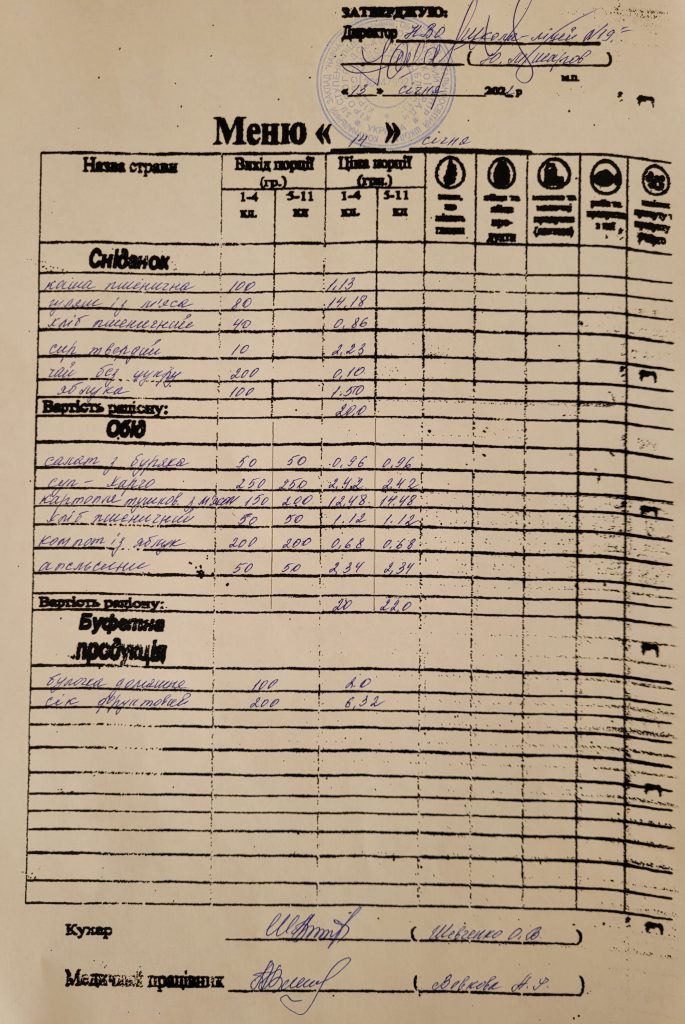 ЗАТВЕРДЖУЮ:
Директор НВО "Школа-ліцей №19"
« 13 » січня 202 р
м.п.
Меню « 14 » січня
Назва страви Вихід порції (гр.) Ціна порції (грн.)
1-4 кл. 5-11 кл 1-4 кл. 5-11 кл
Сніданок
каша пшенична 100 1,13
гуляш із м'яса 80 14,18
хліб пшеничний 40 0,86
сир твердий 10 2,23
чай без цукру 200 0,10
яблука 100 1,50
Вартість раціону: 200
Обід
салат з буряка 50 50 0,96 0,96
суп-харчо 250 250 2,42 2,42
картопля тушков. з м'ясом 150 200 12,48 14,48
хліб пшеничний 50 50 1.12 1.12
компот із яблук 200 200 0,68 0,68
апельсини 50 50 2,34 2,34
Вартість раціону: 20 220
Буфетна продукція
булочка домашня 100 20
сік фруктовий 200 6,32
Кухар ( Шевченко О.В )
Медичний працівник ( Вовкова Н.Ф. )